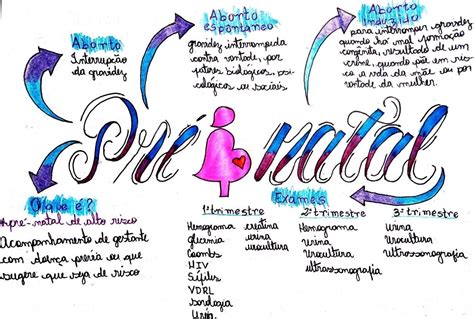 Aborto
Interrupção
da gravidez
Aborto
espontâneo
gravidez interrompida
contra vontade, por
fatores biológicos, psi-
cológicos ou sociais.
Aborto
Induzido
para interromper gravidez
quando há mal formação
congênita, resultado de um
crime, quando põe em ris-
co a vida da mãe ou por
vontade da mulher.
Pré natal
O que é?
pré-natal de alto risco
Acompanhamento de gestante
com doença prévia ou que
sugere que seja de risco
Exames
1º trimestre
Hemograma creatina
glicemia urina
Coombs urocultura
HIV
Sífilis
VDRL
sorologia
Urina
2º trimestre
Hemograma
Urina
Urocultura
ultrassonografia
3º trimestre
Urina
Urocultura
ultrassonografia